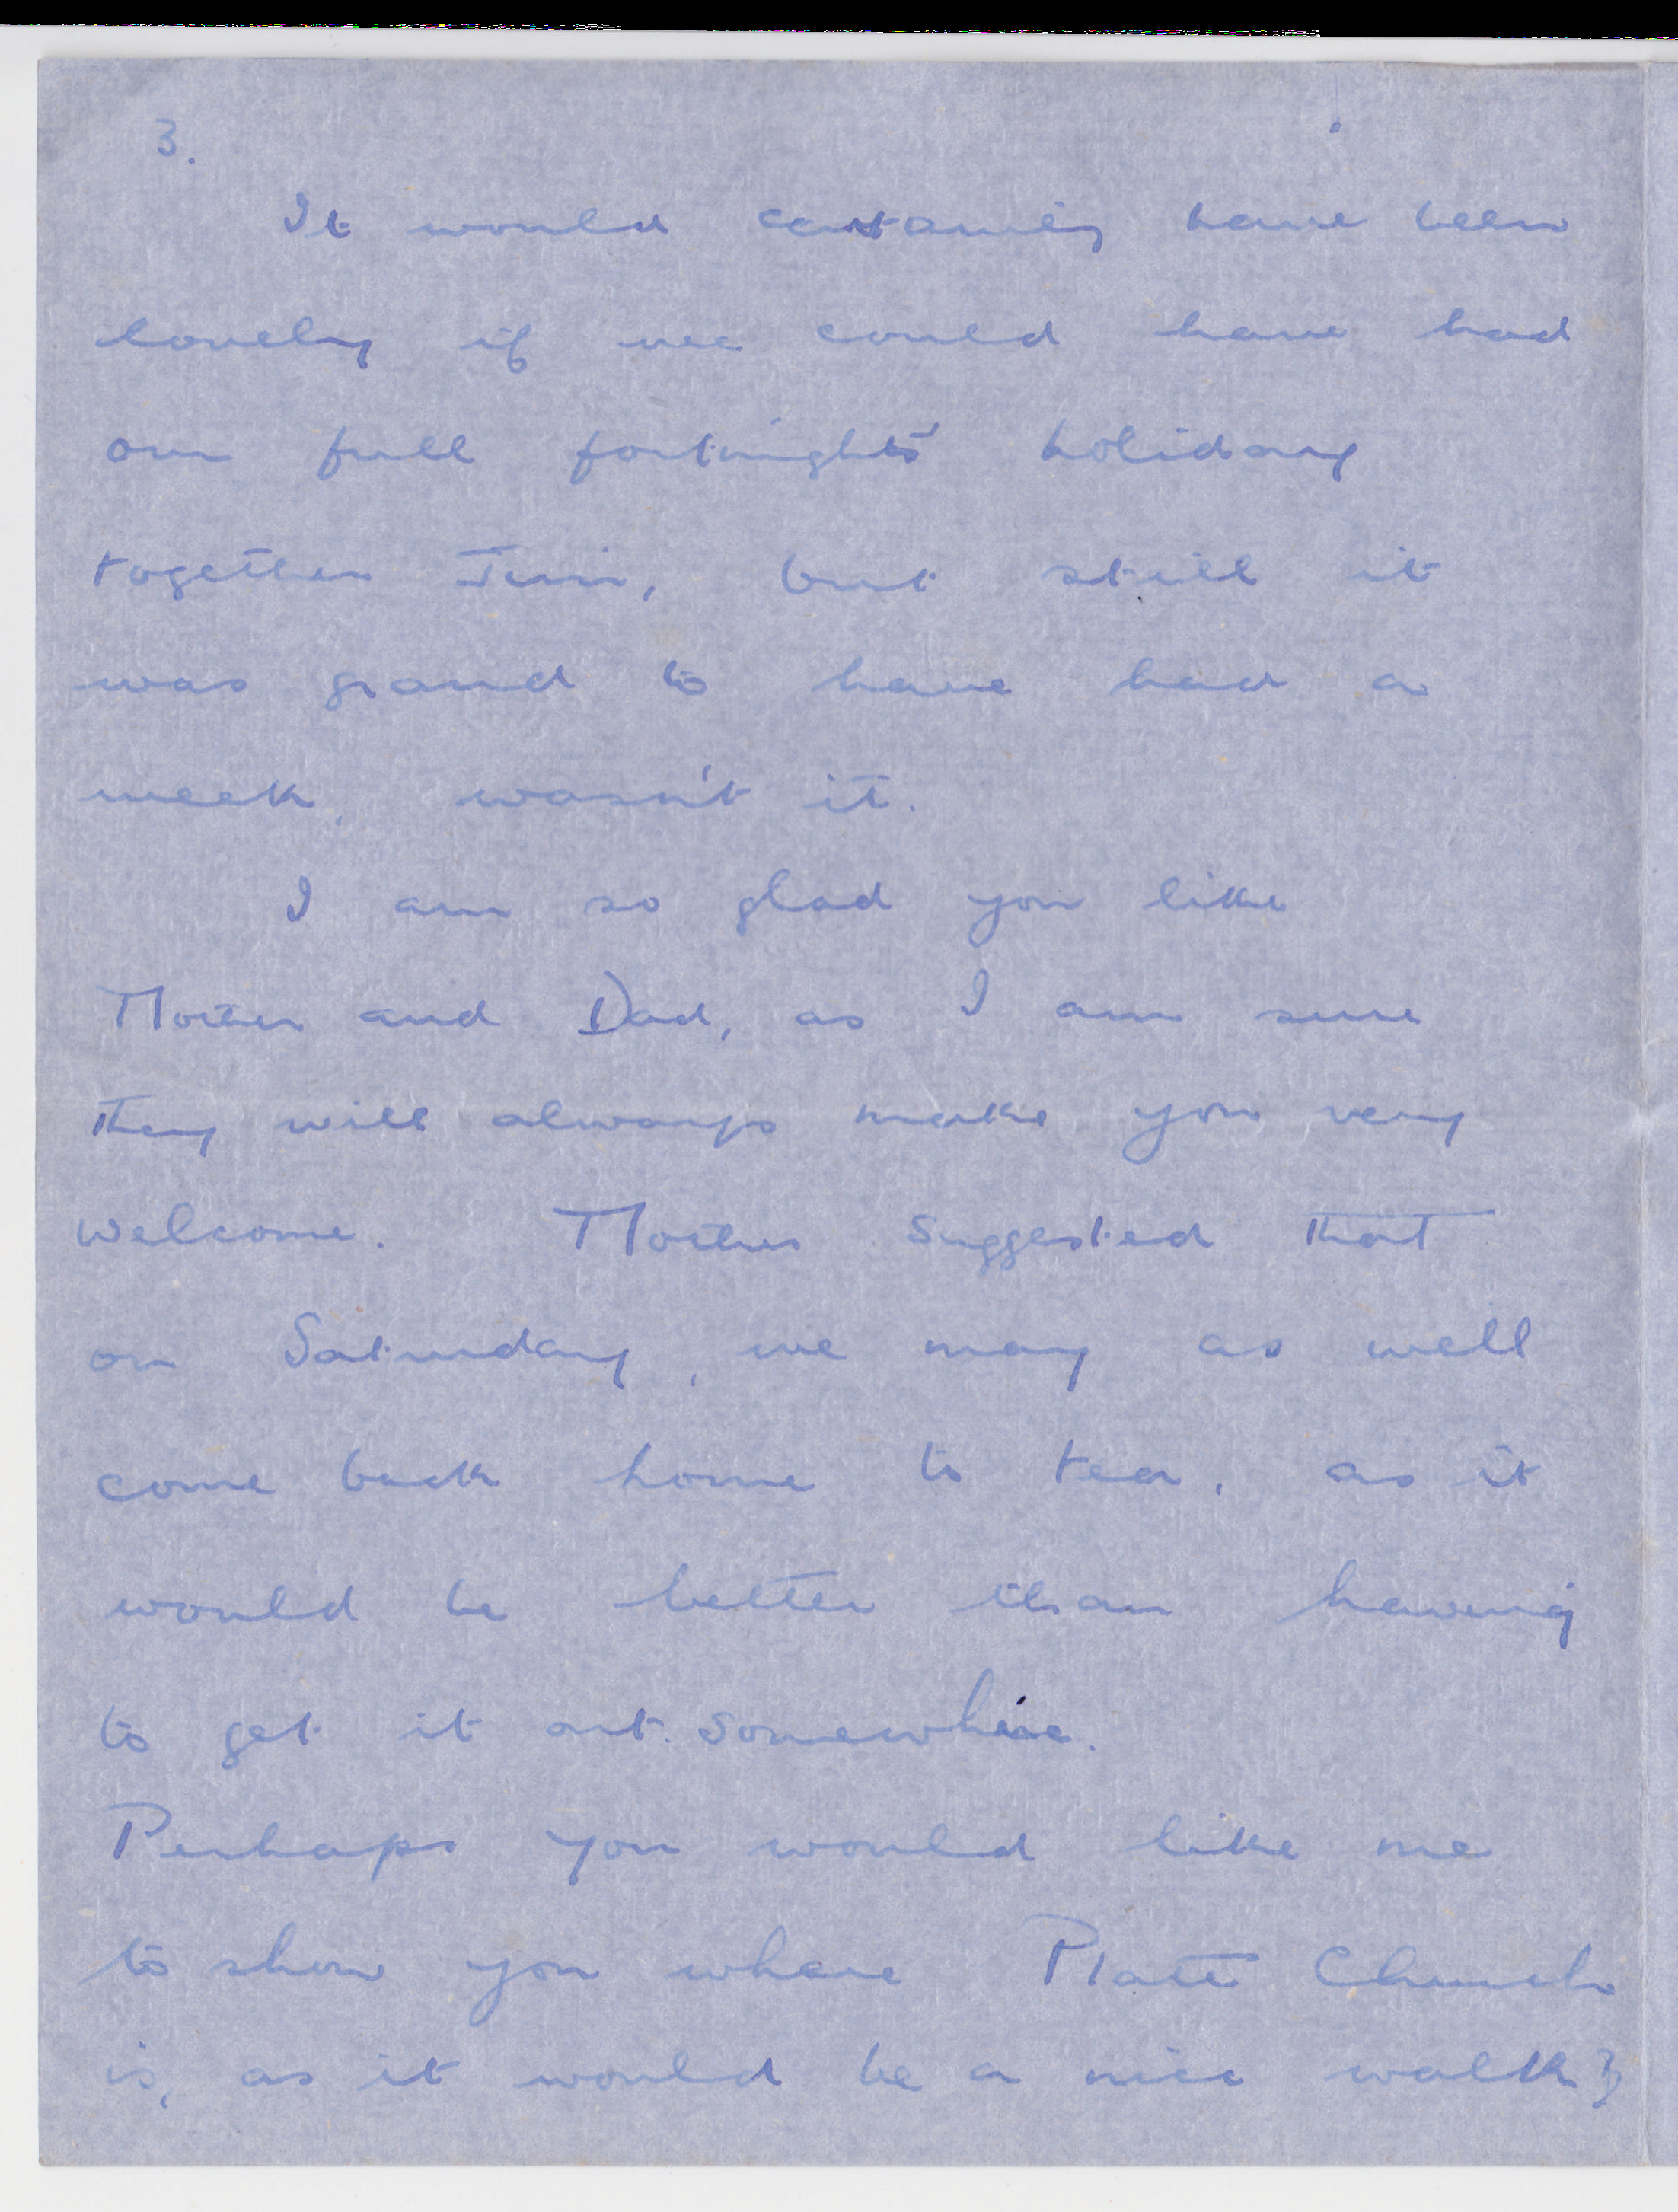 3.
It would certainly have been
lovely if we could have had
our full fortnights' holiday
together Jim, but still it
was grand to have had a
week, wasn't it.
I am so glad you like
Mother and Dad, as I am sure
they will always make you very
welcome. Mother suggested that
on Saturday, we may as well
come back home to tea, as it
would be better than having
to get it out somewhere.
Perhaps you would like me
to show you where Platt Church
is, as it would be a nice walk?